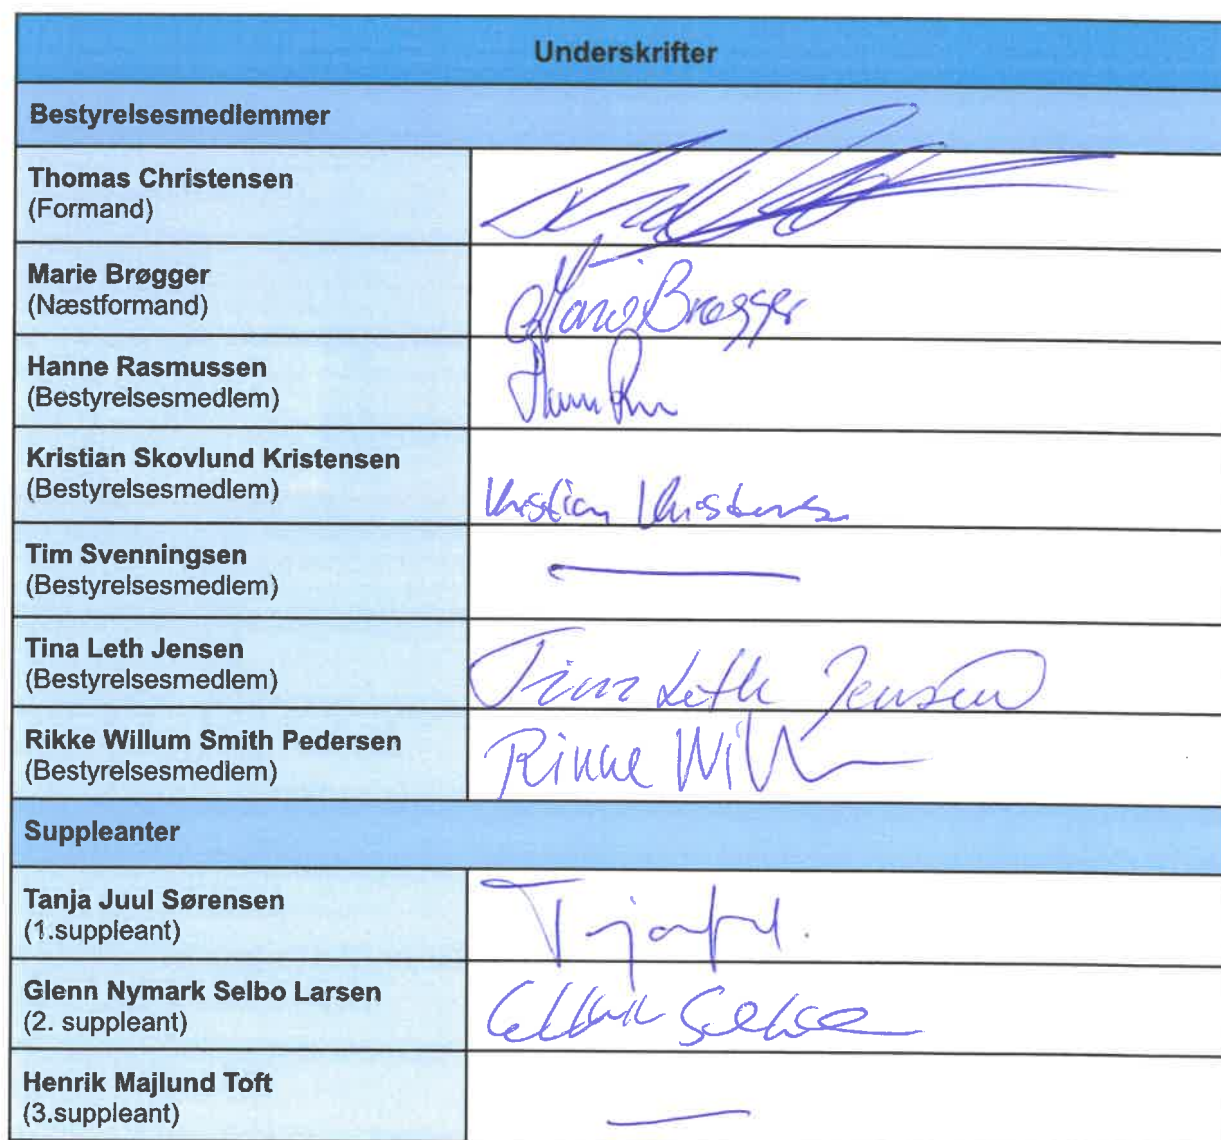 Underskrifter
Bestyrelsesmedlemmer
Thomas Christensen
(Formand)
Marie Brøgger
(Næstformand)
Marie Brøgger
Hanne Rasmussen
(Bestyrelsesmedlem)
Kristian Skovlund Kristensen
(Bestyrelsesmedlem)
Kristian Kristensen
Tim Svenningsen
(Bestyrelsesmedlem)
Tina Leth Jensen
(Bestyrelsesmedlem)
Tina Leth Jensen
Rikke Willum Smith Pedersen
(Bestyrelsesmedlem)
Rikke
Suppleanter
Tanja Juul Sørensen
(1.suppleant)
Glenn Nymark Selbo Larsen
(2. suppleant)
Henrik Majlund Toft
(3.suppleant)